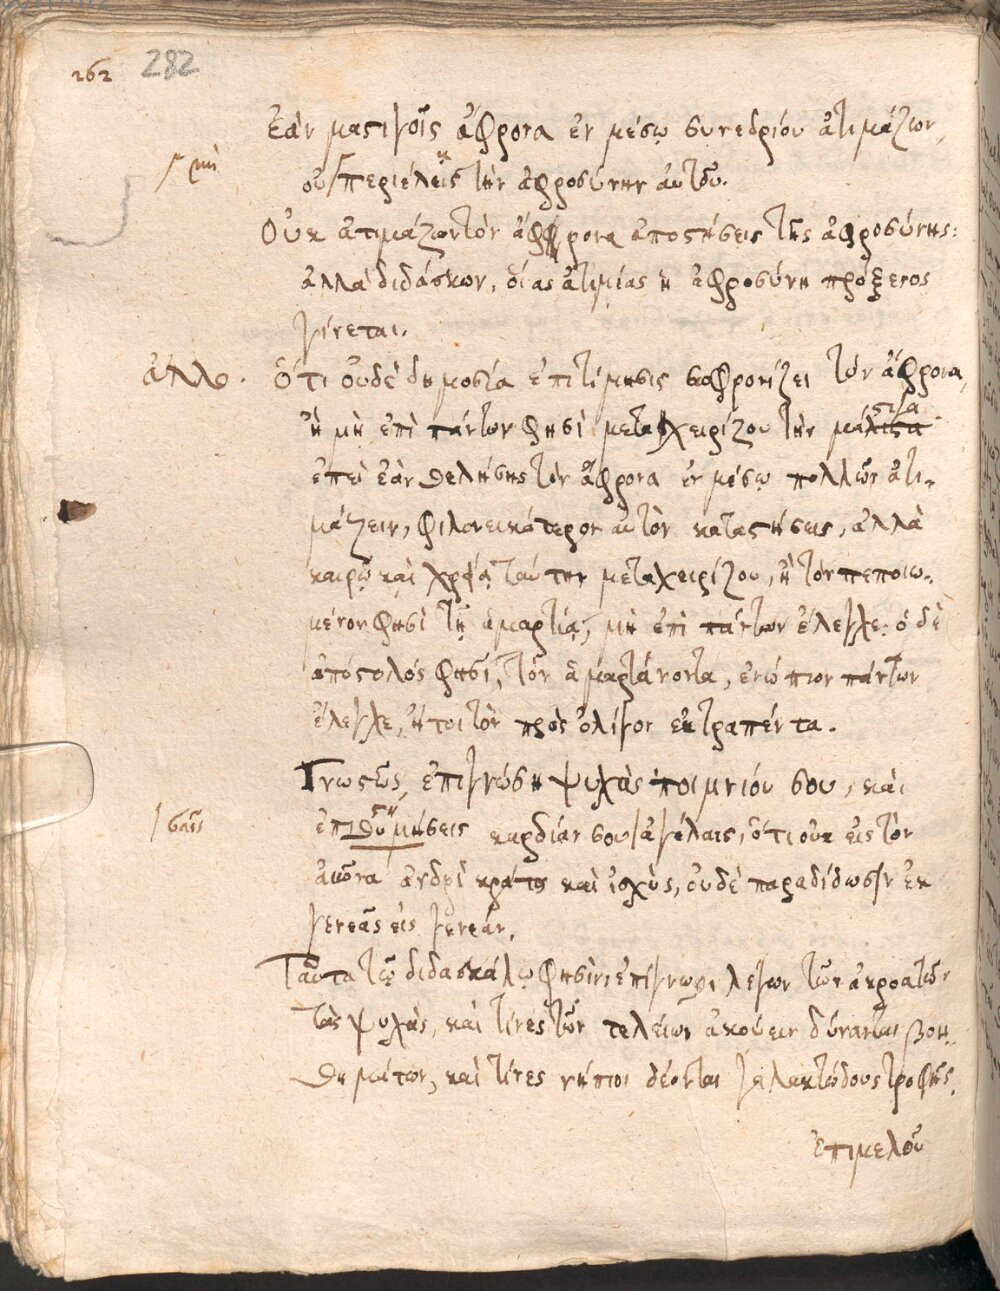 262 282
Ἐὰν μαστιγοῖς ἄφρονα ἐν μέσῳ συνεδρίου ἀτιμάζων,
μὴ
οὐ περιέλεις τὴν ἀφροσύνην αὐτοῦ.
Οὐκ ἀτιμάζων τὸν ἄφρονα ἀποστήσεις τῆς ἀφροσύνης:
ἀλλὰ διδάσκων, οἵας ἀτιμίας ἡ ἀφροσύνη πρόξενος
γίνεται.
ἄλλο. Ὅτι οὐδὲ δημοσία ἐπιτίμησις σωφρονίζει τὸν ἄφρονα,
ἢ μὴ ἐπὶ πάντων φησὶ μεταχειρίζου τὴν μάστιγα
ἐπεὶ ἐὰν θελήσῃς τὸν ἄφρονα ἐν μέσῳ πολλῶν ἀτι-
μάζειν, φιλονεικότερον αὐτὸν καταστήσεις, ἀλλὰ
καιρῷ καὶ χρείᾳ ταύτην μεταχειρίζου, ἢ τὸν πεποιω-
μένον φησὶ τῇ ἁμαρτίᾳ, μὴ ἐπὶ πάντων ἔλεγχε· ὁ δὲ
ἀπόστολός φησί, τὸν ἁμαρτάνοντα, ἐνώπιον πάντων
ἔλεγχε, ἤτοι τὸν πρὸς ὀλίγον ἐκτραπέντα.
Γνωστῶς ἐπιγνώσῃ ψυχὰς ποιμνίου σου, καὶ
ἐπιθυμήσεις καρδίαν σου ἀγέλαις, ὅτι οὐκ εἰς τὸν
σαῖς
αἰῶνα ἀνδρὶ κράτος καὶ ἰσχὺς, οὐδὲ παραδίδωσιν ἐκ
γενεᾶς εἰς γενεάν.
Ταῦτα τῷ διδασκάλῳ φησὶν ἐπιγνωρι λέγων τῶν ἀκροατῶν
τὰς ψυχὰς, καὶ τίνες τῶν τελείων ἀκούειν δύνανται βοη-
θημάτων, καὶ τίνες νήπιοι δέονται γαλακτώδους τροφῆς.
ἐπιμελοῦ